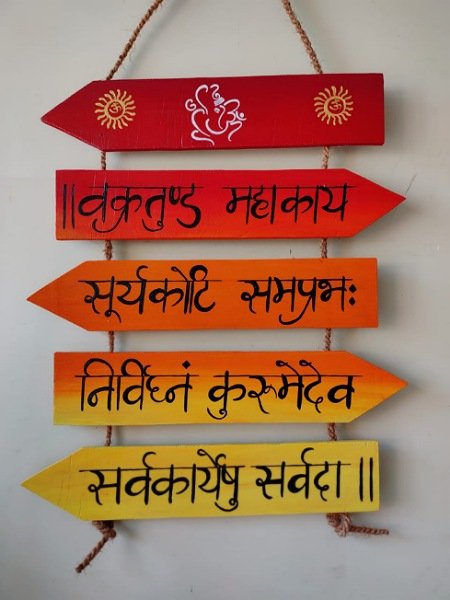 ॥वक्रतुण्ड महाकाय
सूर्यकोटि समप्रभः
निर्विघ्नं कुरूमेदेव
सर्वकार्येषु सर्वदा॥